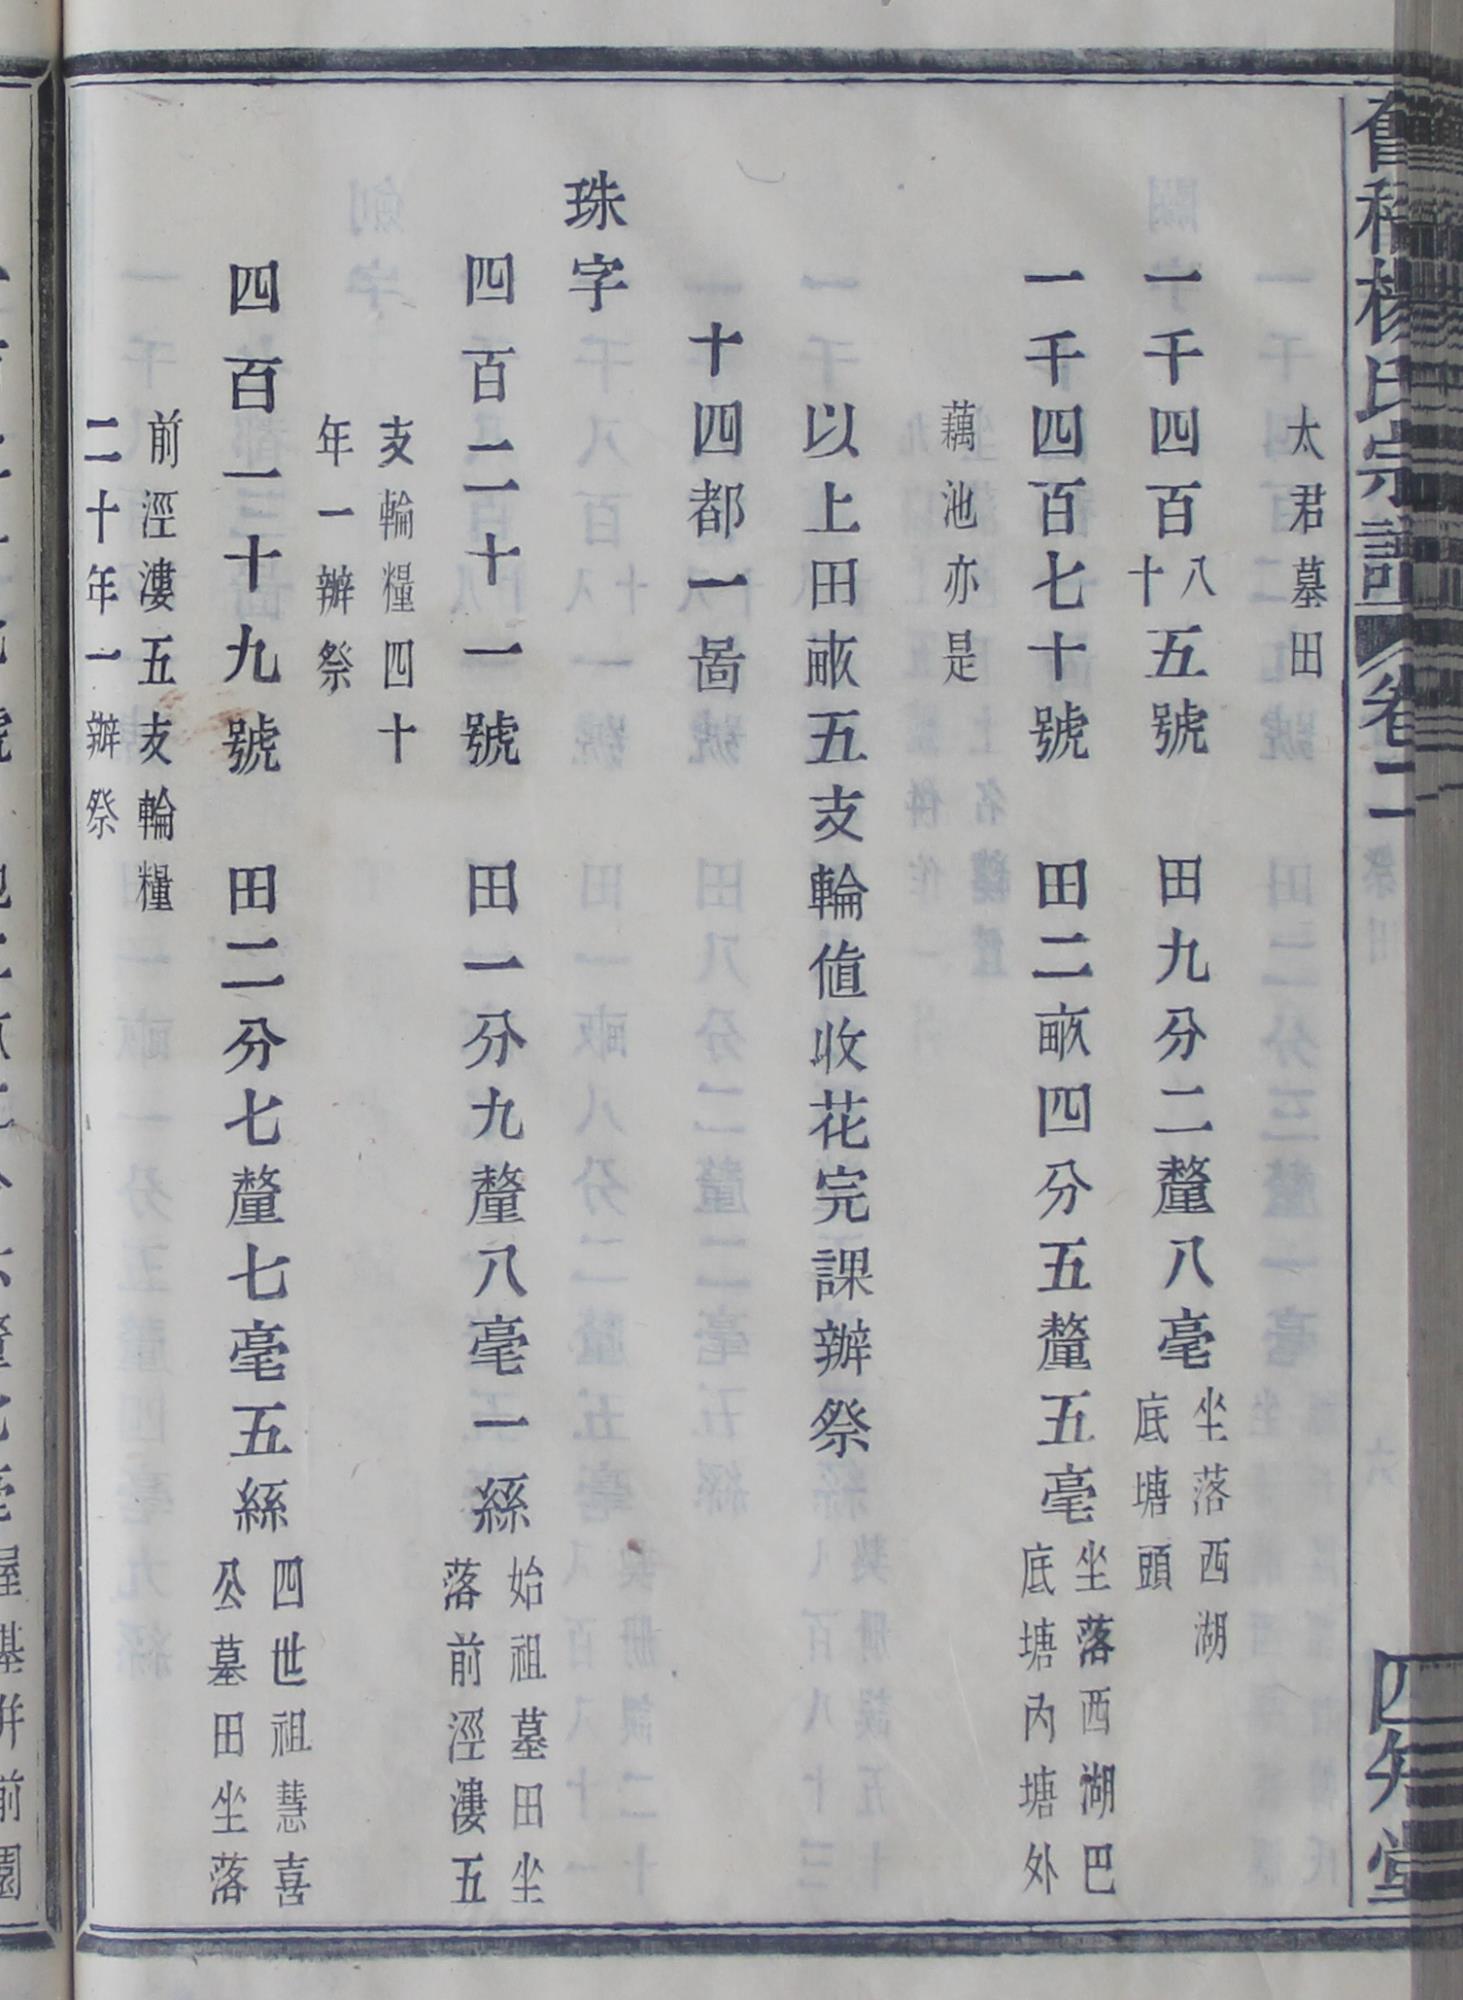 太君墓田
一千四百八十五號 田九分二釐八毫 坐落西湖底塘頭
一千四百七十號 田二畝四分五釐五毫 坐落西湖巴底塘內塘外
藕池亦是
以上田畝五支輪值收花完課辦祭
十四都一啚
珠字
四百二十一號 田一分九釐八毫一絲 始祖墓田坐落前涇漊五
支輪糧四十年一辦祭
四百一十九號 田二分七釐七毫五絲 四世祖慧喜公墓田坐落
前涇漊五支輪糧二十年一辦祭
楊氏宗譜 卷二
四知堂